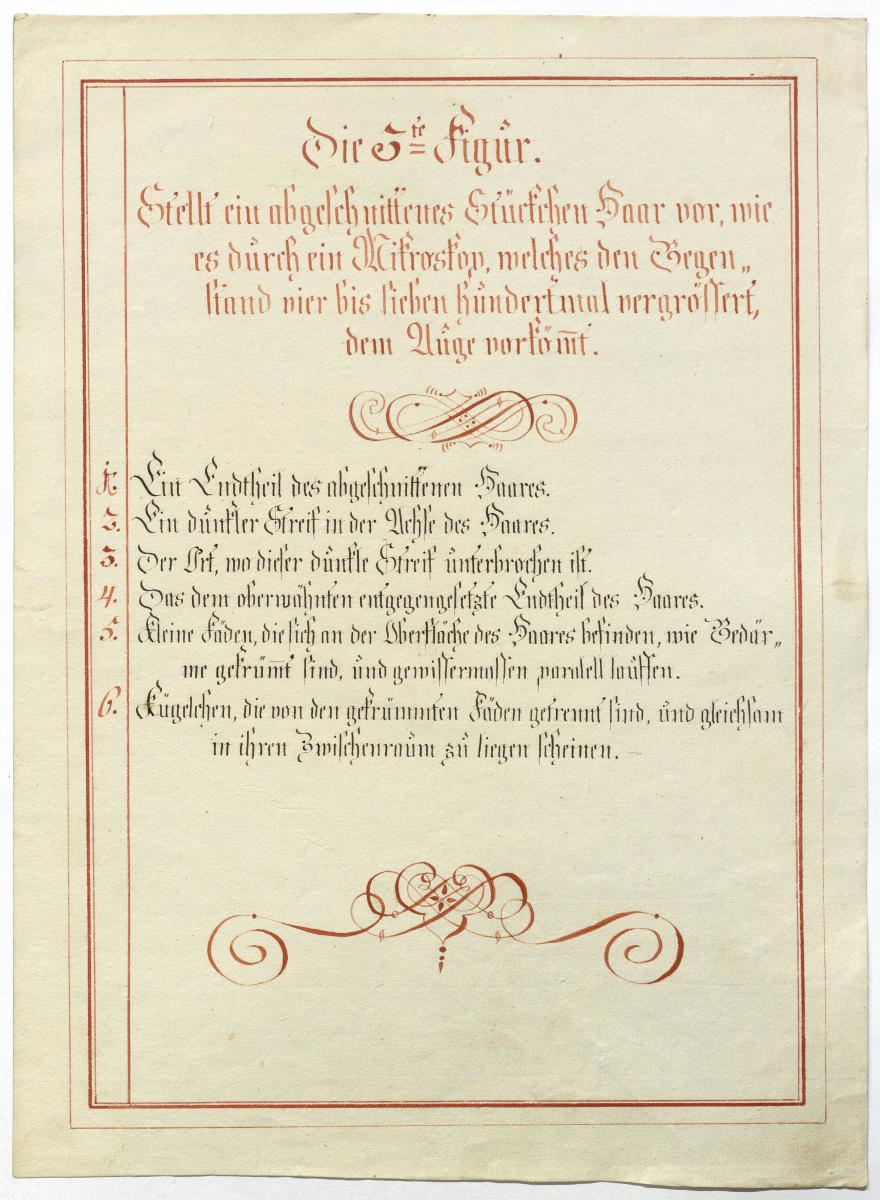 Die 5te Figur.
Stellt ein abgeschnittenes Stückchen Haar vor, wie
es durch ein Mikroskop, welches den Gegen„
stand vier bis sieben hundertmal vergrössert,
dem Auge vorköm̅t.
1. Ein Endtheil des abgeschnittenen Haares.
2. Ein dunkler Streif in der Achse des Haares.
3. Der Ort, wo dieser dunkle Streif unterbrochen ist.
4. Das dem oberwähnten entgegengesetzte Endtheil des Haares.
5. Kleine Fäden, die sich an der Oberfläche des Haares befinden, wie Gedär„
me gekrüm̅t sind, und gewissermassen paralell lauffen.
6. Kügelchen, die von den gekrümmten Fäden getrennt sind, und gleichsam
in ihren Zwischenraum zu liegen scheinen.